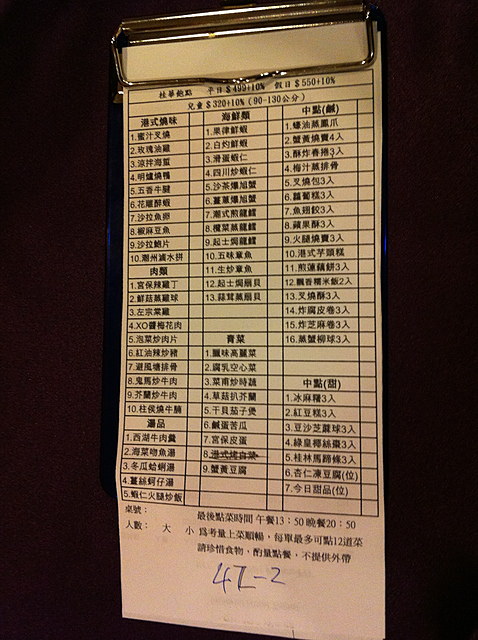 桂華飽點 平日$499+10% 假日$550+10%
兒童$320+10% (90-130公分)
港式燒味
1.蜜汁叉燒
2.玫瑰油雞
3.涼拌海蜇
4.明爐燒鴨
5.五香牛腱
6.花雕醉蝦
7.沙拉魚卵
8.椒麻豆魚
9.沙拉鮑片
10.潮州滷水拼
肉類
1.宮保辣雞丁
2.鮮菇蒸雞球
3.左宗棠雞
4.XO醬梅花肉
5.泡菜炒肉片
6.紅油辣炒豬
7.避風塘排骨
8.鬼馬炒牛肉
9.芥蘭炒牛肉
10.柱侯燒牛腩
湯品
1.西湖牛肉羹
2.海菜吻魚湯
3.冬瓜蛤蜊湯
4.薑絲蚵仔湯
5.蝦仁火腿炒飯
海鮮類
1.果律鮮蝦
2.白灼鮮蝦
3.滑蛋蝦仁
4.四川炒蝦仁
5.沙茶爆旭蟹
6.薑蔥爆旭蟹
7.潮式煎龍鱈
8.欖菜蒸龍鱈
9.起士焗龍鱈
10.五味章魚
11.生炒章魚
12.起士焗扇貝
13.蒜茸蒸扇貝
青菜
1.臘味高麗菜
2.腐乳空心菜
3.菜甫炒時蔬
4.草菇扒芥蘭
5.干貝茄子煲
6.鹹蛋苦瓜
7.宮保皮蛋
8.港式燒白菜
9.蟹黃豆腐
中點(鹹)
1.蠔油蒸鳳爪
2.蟹黃燒賣4入
3.酥炸春捲3入
4.梅汁蒸排骨
5.叉燒包3入
6.蘿蔔糕3入
7.魚翅餃3入
8.蘋果酥3入
9.火腿燒賣3入
10.港式芋頭糕
11.煎蓮藕餅3入
12.飄香糯米飯2入
13.叉燒酥3入
14.炸腐皮卷3入
15.炸芝麻卷3入
16.蒸蟹柳球3入
中點(甜)
1.冰麻糬3入
2.紅豆糕3入
3.豆沙芝蔴球3入
4.綠皇椰絲棗3入
5.桂林馬蹄條3入
6.杏仁凍豆腐(位)
7.今日甜品(位)
桌號: 最後點菜時間 午餐13:50 晚餐20:50
人數: 大 小 為考量上菜順暢，每單最多可點12道菜
請珍惜食物，酌量點餐，不提供外帶